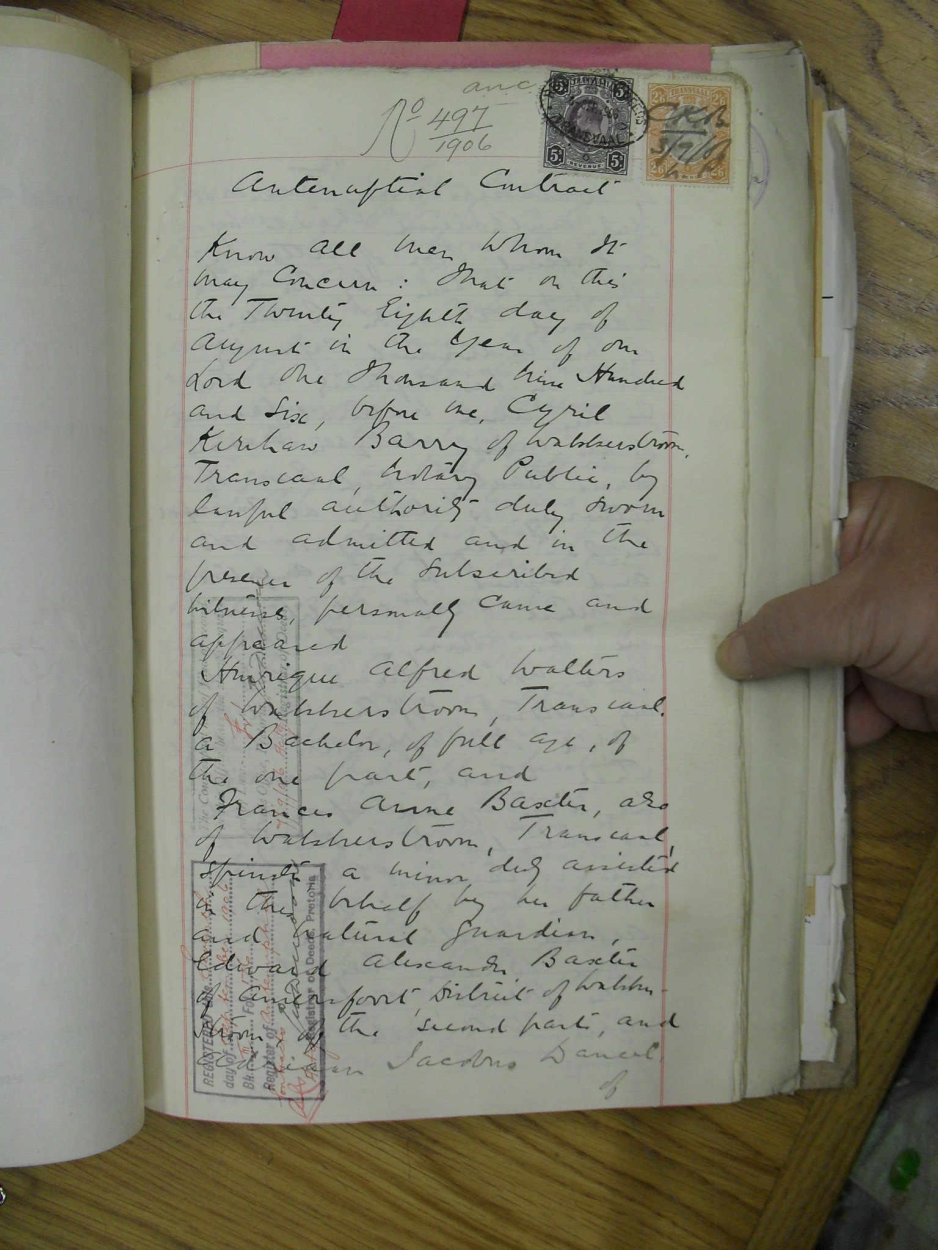 anc
No 497
1906
TRANSVAAL
5/-
5/-
REVENUE
TRANSVAAL
2/6
2/6
CKB
Antenuptial Contract
Know all men whom It
may Concern : That on this
the Twenty Eighth day of
August in the Year of our
Lord One Thousand Nine Hundred
and Six, before me, Cyril
Kershaw Barry of Wakkerstroom,
Transvaal, Notary Public, by
lawful authority duly sworn
and admitted and in the
presence of the Subscribed
witnesses, personally Came and
appeared
Henrique Alfred Walters
of Wakkerstroom, Transvaal,
a Bachelor, of full age, of
the one part, and
Frances Anne Baxter, also
of Wakkerstroom, Transvaal,
Spinster a minor duly assisted
in this behalf by her father
and natural Guardian,
Edward Alexander Baxter
of Amersfoort, District of Wakker-
stroom of the second part, and
Jacobus Daniel
of
REGISTERED
day of
Bk.
Register of
Registrar of Deeds, Pretoria